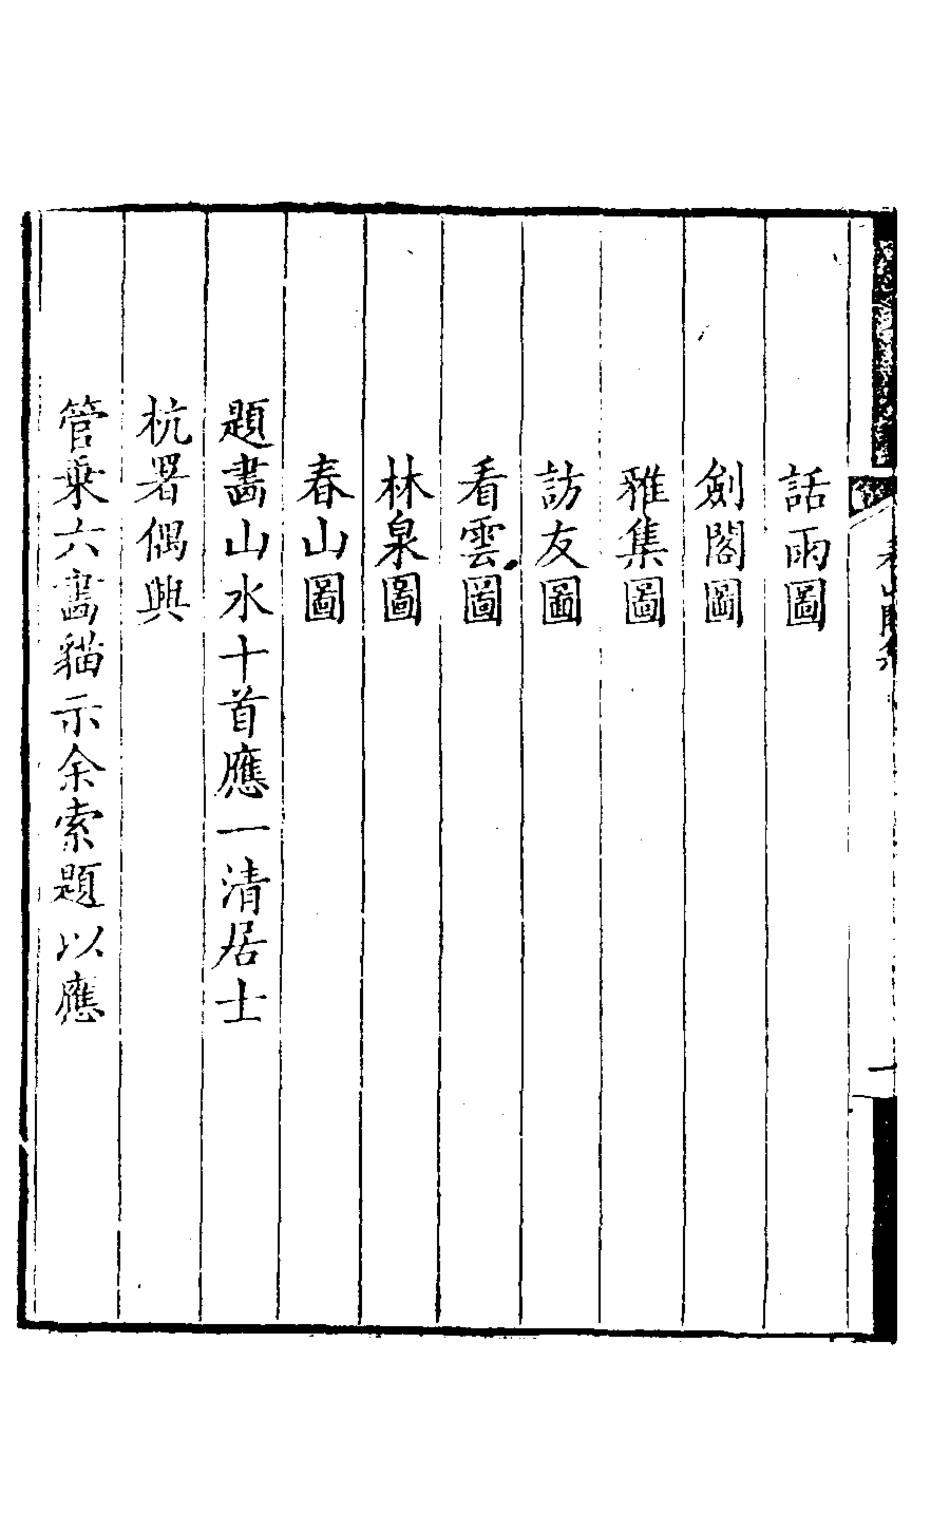 話雨圖
劍閣圖
雅集圖
訪友圖
看雲圖
林泉圖
春山圖
題畵山水十首應一清居士
杭署偶興
管乗六畵貓示余索題以應
一